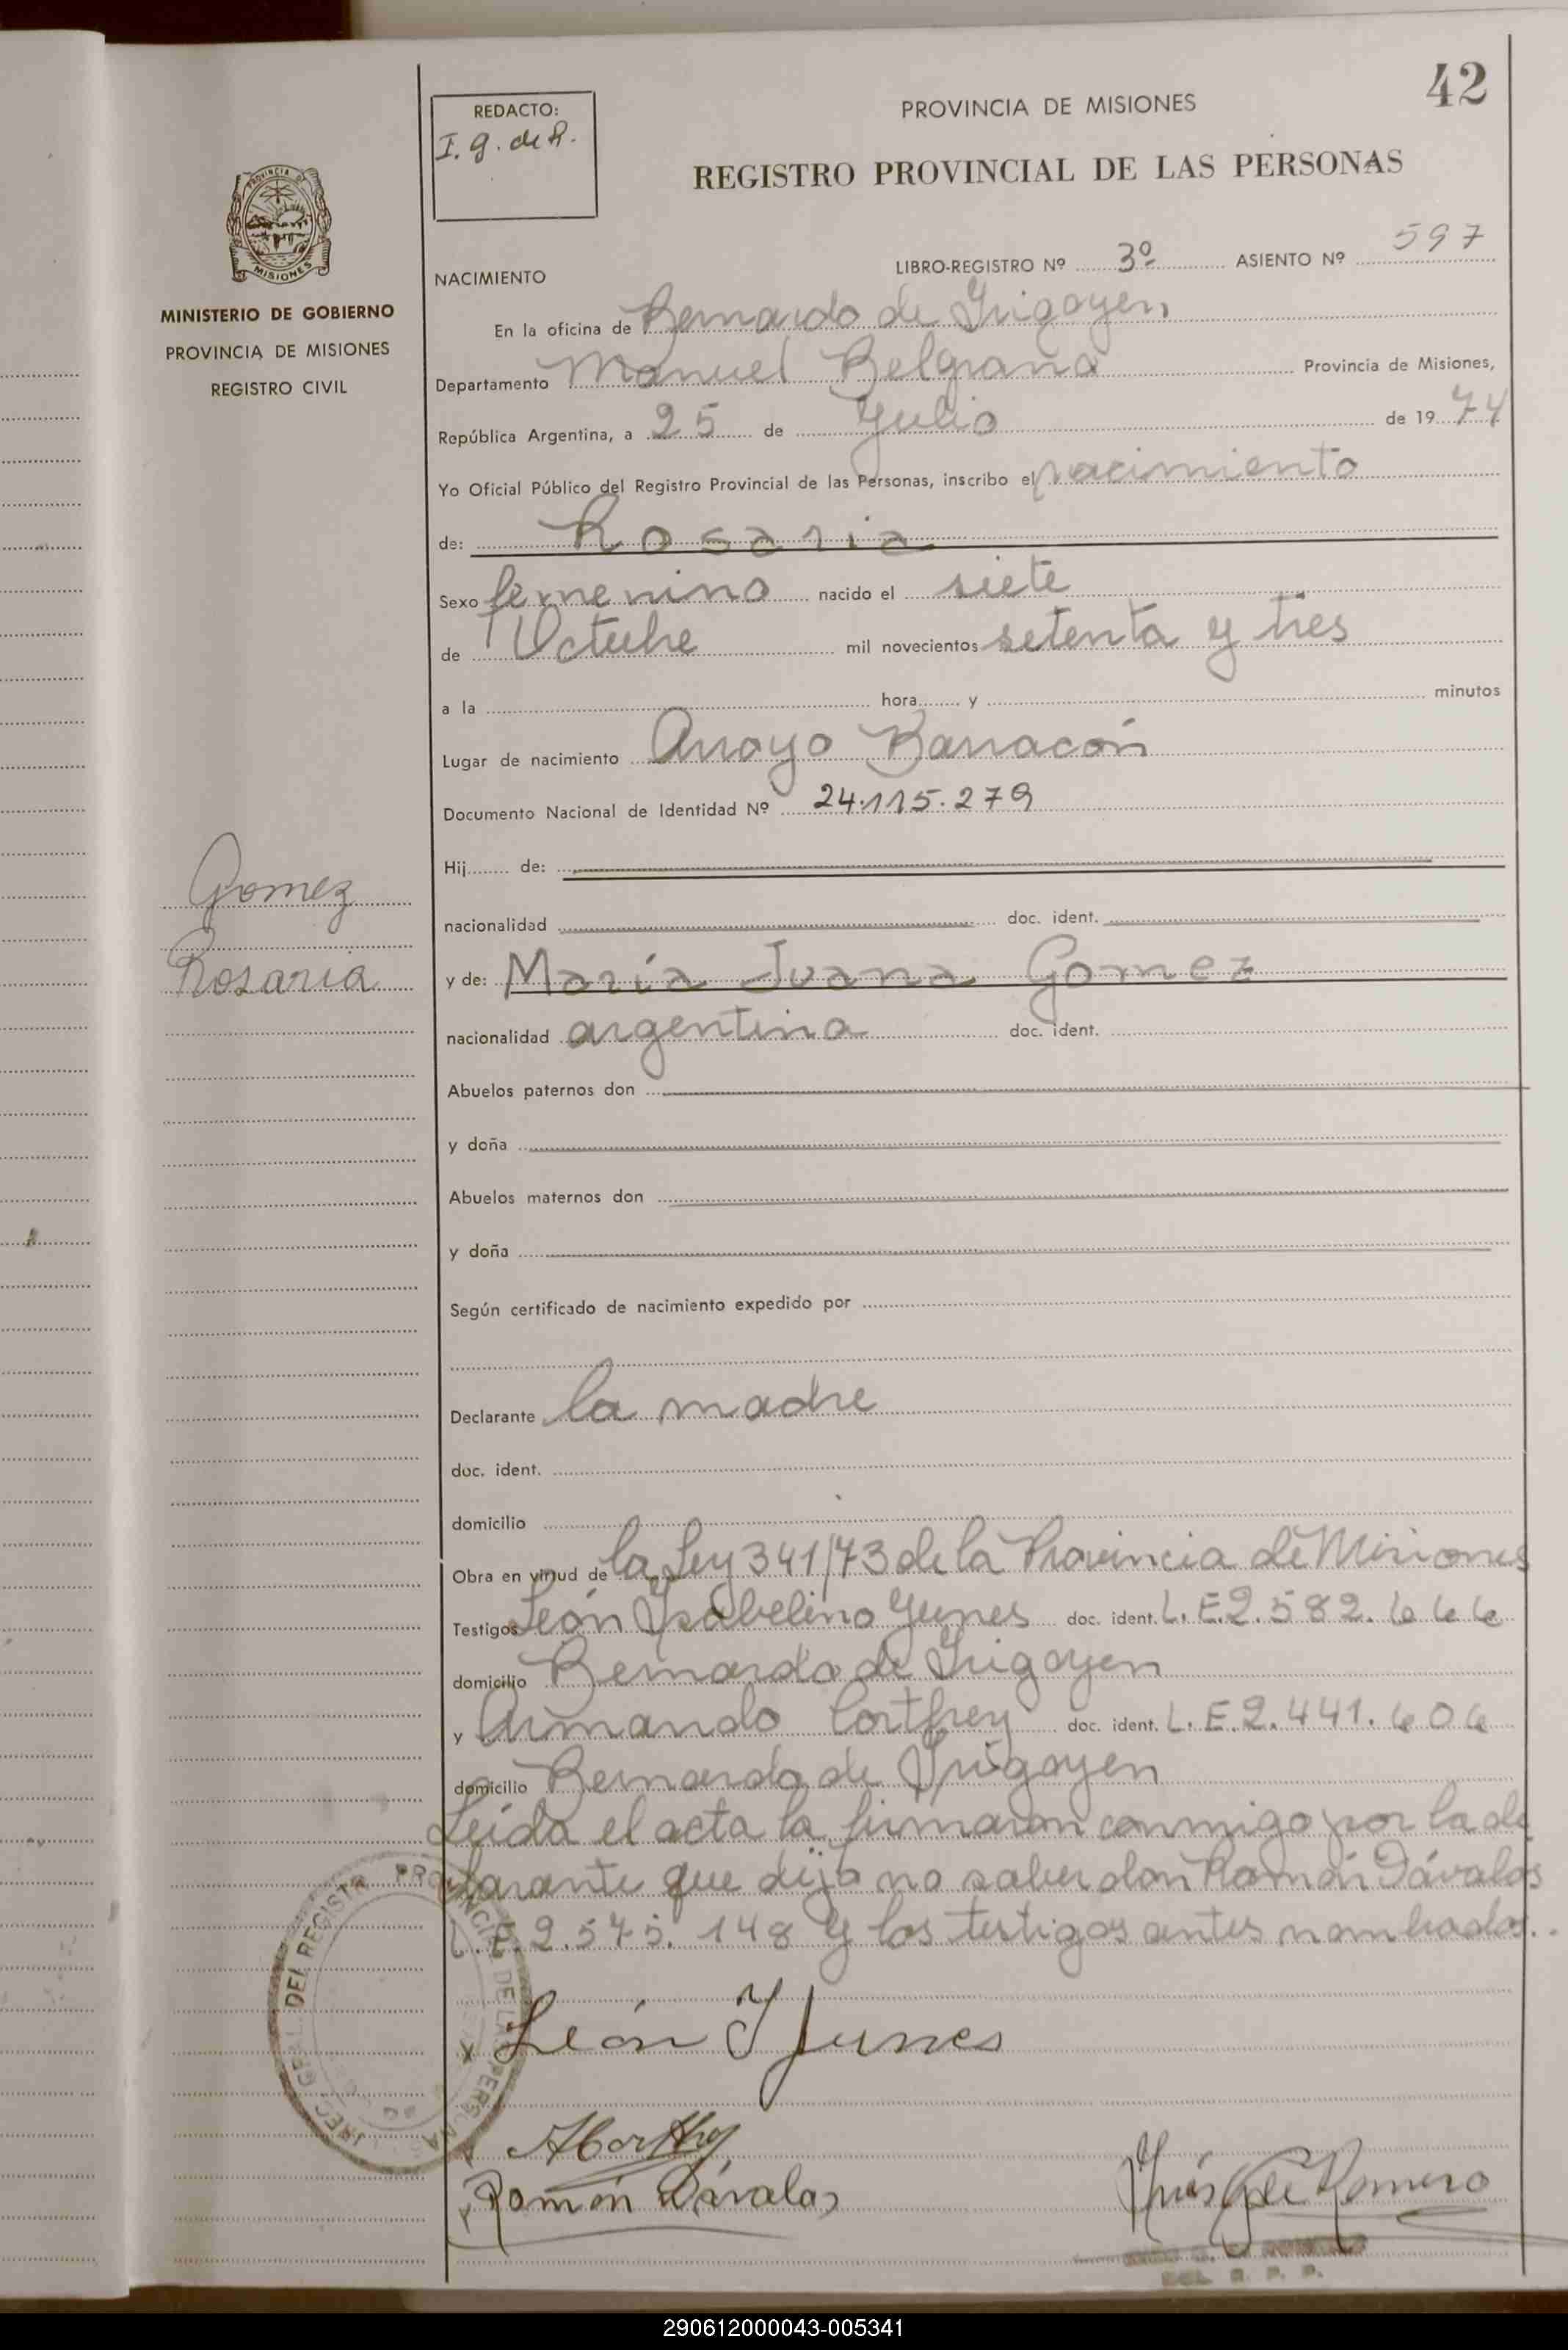 42
REDACTO:
I. g. de R.
PROVINCIA DE MISIONES
REGISTRO PROVINCIAL DE LAS PERSONAS
PROVINCIA DE
MISIONES
MINISTERIO DE GOBIERNO
PROVINCIA DE MISIONES
REGISTRO CIVIL
LIBRO-REGISTRO Nº 3º ASIENTO Nº 597
NACIMIENTO
En la oficina de Bernardo de Irigoyen
Departamento Manuel Belgrano Provincia de Misiones,
República Argentina, a 25 de Julio de 1974
Yo Oficial Público del Registro Provincial de las Personas, inscribo el nacimiento
de: Rosaria
Sexo femenino nacido el siete
de Octubre mil novecientos setenta y tres
a la hora y minutos
Lugar de nacimiento Arroyo Barracón
Documento Nacional de Identidad Nº 24.115.279
Hij de:
Gomez
Rosaria
nacionalidad doc. ident.
y de: María Juana Gomez
nacionalidad argentina doc. ident.
Abuelos paternos don
y doña
Abuelos maternos don
y doña
Según certificado de nacimiento expedido por
Declarante la madre
doc. ident.
domicilio
Obra en virtud de la Ley 341/73 de la Provincia de Misiones
Testigos León Ysabelino Yunes doc. ident. L.E.2.582.666
domicilio Bernardo de Irigoyen
y Armando Cortfrey doc. ident. L.E.2.441.606
domicilio Bernardo de Irigoyen
Leída el acta la firmaron conmigo por la de
clarante que dijo no saber don Ramón Dávalos
L.E.2.575.148 y los testigos antes nombrados.
León Y Yunes
Ramón Dávalos
Inés G de Romero
DEL R. P. P.
290612000043-005341